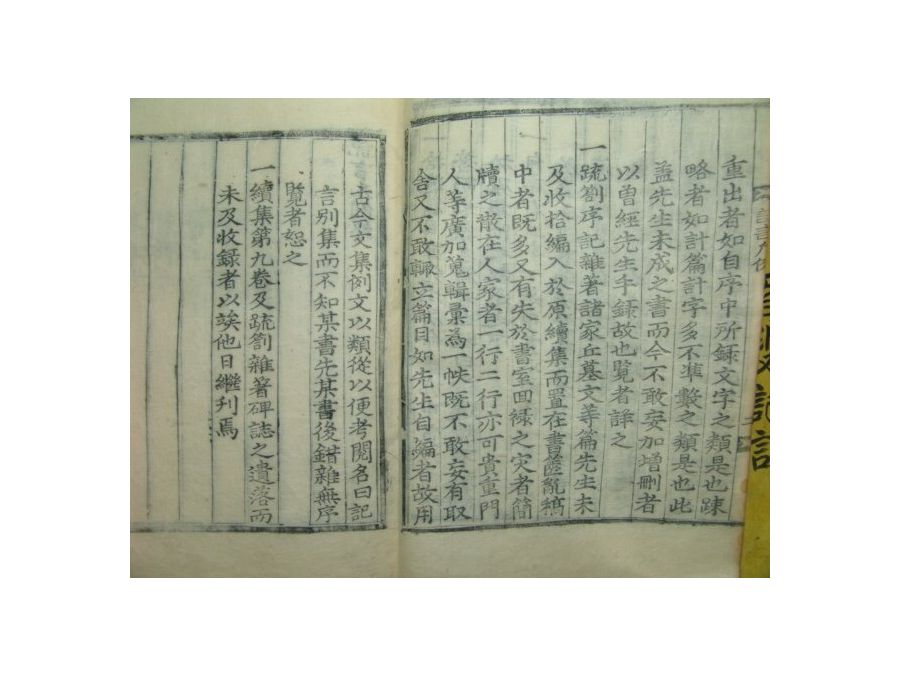 重出者如自序中所錄文字之類是也踈
略者如計篇計字多不準數之類是也此
盖先生未成之書而今不敢妄加增刪者
以曾經先生手錄故也覧者詳之
一疏劄序記雜著諸家丘墓文等篇先生未
及收拾編入於原續集而置在書篋亂稿
中者既多又有失於書室回祿之灾者簡
牘之散在人家者一行二行亦可貴重門
人等廣加蒐輯彙為一帙既不敢妄有取
舍又不敢輒立篇目如先生自編者故用
古今文集例文以類從以便考閱名曰記
言別集而不知某書先某書後錯雜無序
覧者恕之
一續集第九卷及疏劄雜著碑誌之遺落而
未及收録者以竢他日繼刊焉